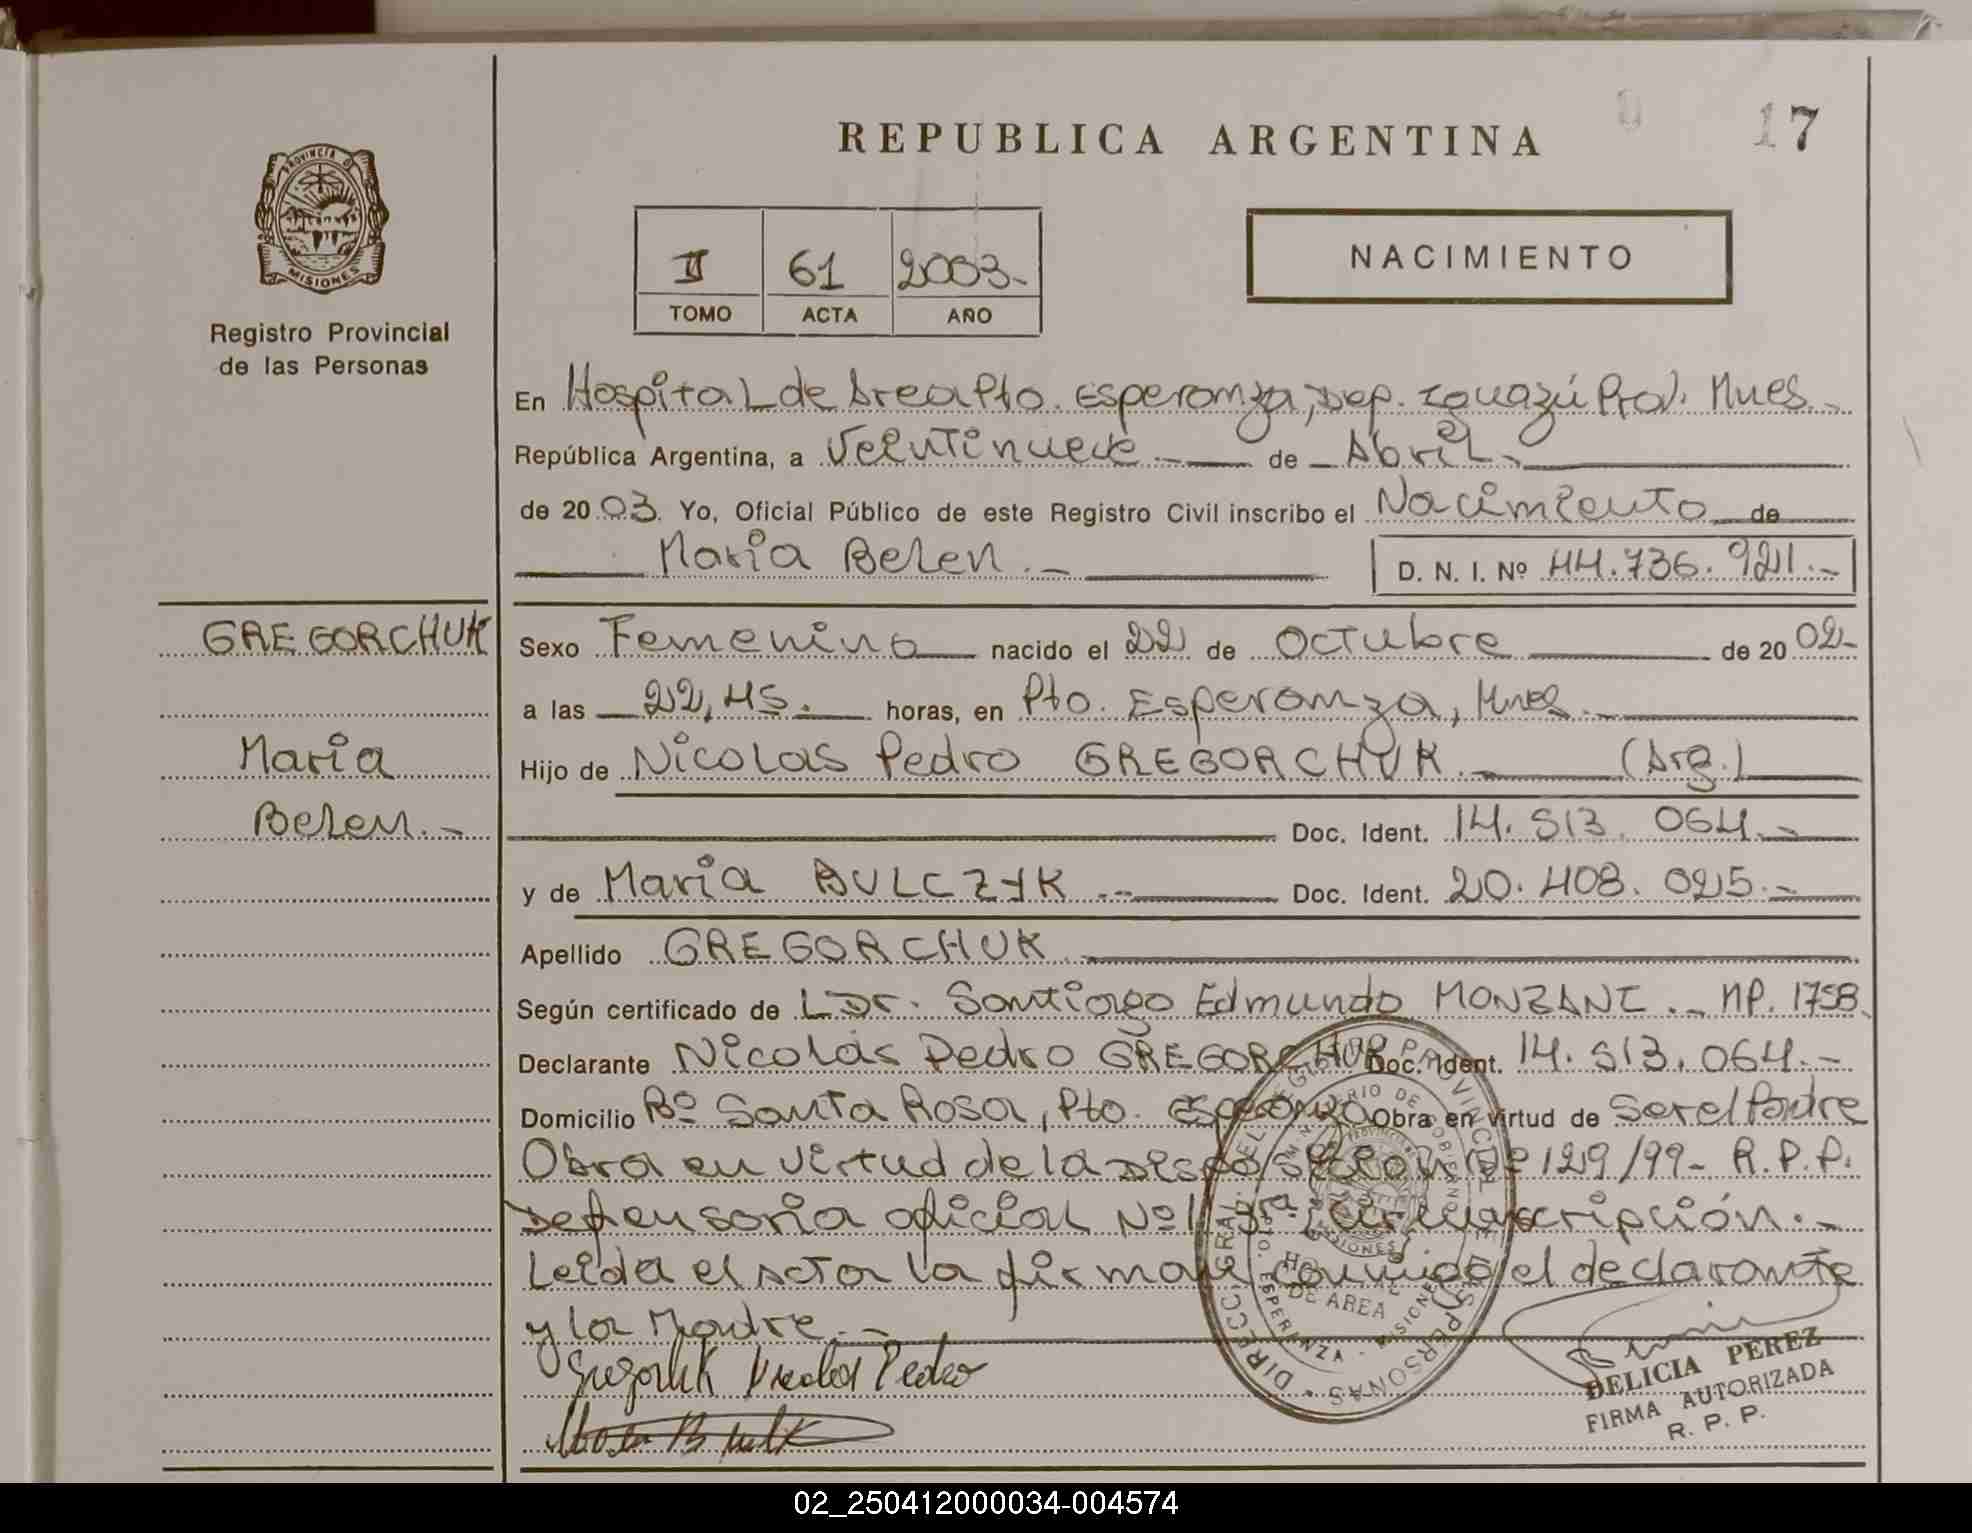 REPUBLICA ARGENTINA
17
PROVINCIA DE
MISIONES
Registro Provincial
de las Personas
II 61 2003.-
TOMO ACTA AÑO
NACIMIENTO
En Hospital de Area Pto. Esperanza, Dep. Iguazú Prov. Mnes.-
República Argentina, a Veintinueve.- de Abril.-
de 2003. Yo, Oficial Público de este Registro Civil inscribo el Nacimiento de
Maria Belen.- D. N. I. Nº 44.736.921.-
GREGORCHUK
Maria
Belen.-
Sexo Femenino nacido el 22 de Octubre de 2002-
a las 22,45. horas, en Pto. Esperanza, Mnes.-
Hijo de Nicolas Pedro GREGORCHUK.- (Arg.)
Doc. Ident. 14.513.064.-
y de Maria BULCZYK.-- Doc. Ident. 20.408.025.-
Apellido GREGORCHUK.-
Según certificado de Dr. Santiago Edmundo MONZANI.- MP. 1758.
Declarante Nicolás Pedro GREGORCHUK Doc. Ident. 14.513.064.-
Domicilio Bº Santa Rosa, Pto. Esperanza Obra en virtud de Ser el Padre
Obra en virtud de la Disposición Nº 129/99- R.P.P.
Defensoria oficial Nº1 3ra. Circunscripción.-
Leida el acta la firman conmigo el declarante
y la Madre.-
Nicolas Pedro
DIRECC. GRAL. DEL REGISTRO PROVINCIAL DE LAS PERSONAS
MINISTERIO DE GOBIERNO
HOSPITAL
DE AREA
PTO. ESPERANZA - MISIONES
DELICIA PEREZ
FIRMA AUTORIZADA
R. P. P.
02_250412000034-004574